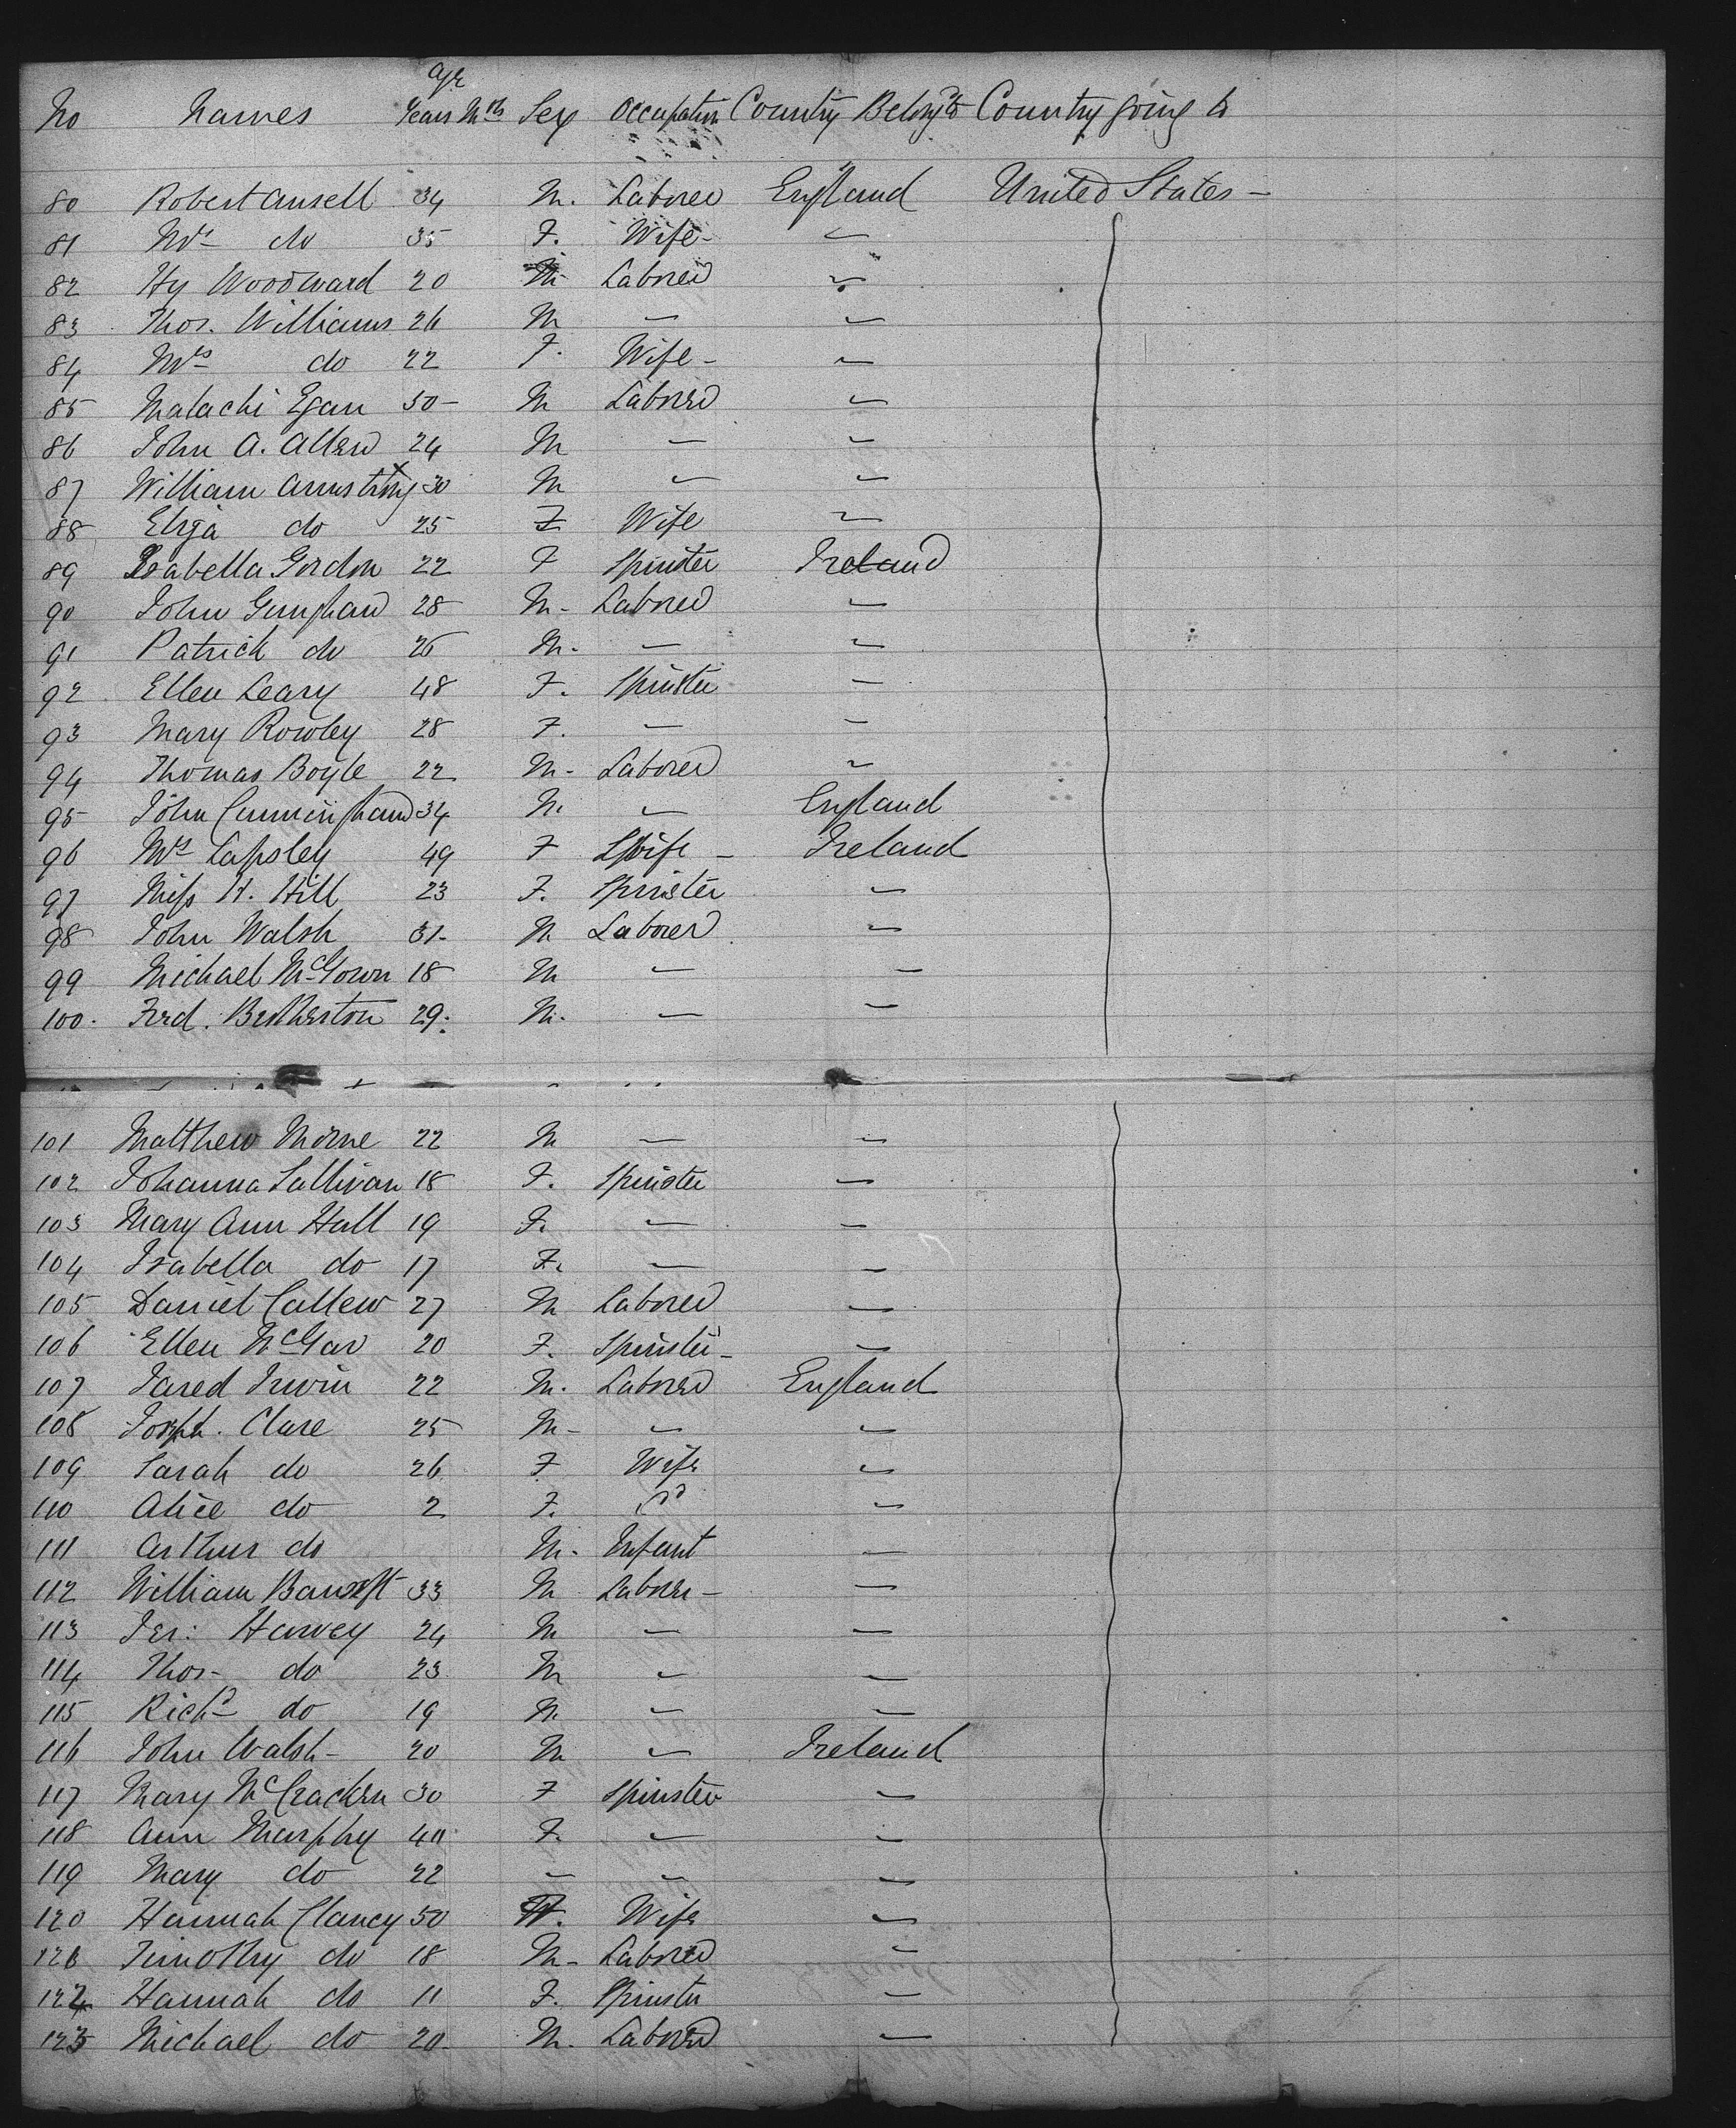 age
No Names Years Mths Sex Occupation Country Belong to Country going to
80 Robert Ansell 34 M. Laborer England United States –
81 Mrs do 35 F. Wife – "
82 Hy Woodward 20 M Laborer "
83 Thos. Williams 26 M " "
84 Mrs do 22 F. Wife – "
85 Malachi Egan 50 – M Laborer "
86 John A. Allen 24 M " "
87 William Armstrong 30 M " "
88 Eliza do 25 F Wife "
89 Isabella Gordon 22 F Spinster Ireland
90 John 28 M – Laborer "
91 Patrick do 26 M. " "
92 Ellen Leary 48 F. Spinster "
93 Mary Rowley 28 F. " "
94 Thomas Boyle 22 M – Laborer "
95 John Cunningham 34 M. " England
96 Mrs Lapsley 49 F Wife – Ireland
97 Miss H. Hill 23 F. Spinster "
98 John Walsh 31 – M Laborer "
99 Michael McGown 18 M " "
100. Fred. 29. M. " "
101 Matthew 22 M " "
102 Johanna Sullivan 18 F. Spinster "
103 Mary Ann Hall 19 F. " "
104 Isabella do 17 F. " "
105 Daniel Cullen 27 M Laborer "
106 Ellen McGar 20 F. Spinster – "
107 Jared Irwin 22 M. Laborer England
108 Joseph. Clare 25 M – " "
109 Sarah do 26 F Wife "
110 Alice do 2 F. "
111 Arthur do M. Infant "
112 William Bancroft 33 M Laborer – "
113 Jer: Harvey 24 M " "
114 Thos – do 23 M " "
115 Richd do 19 M. " "
116 John Walsh – 20 M " Ireland
117 Mary McCracken 30 F Spinster "
118 Ann Murphy 40 F. " "
119 Mary do 22 " " "
120 Hannah Clancy 50 F. Wife "
121 Timothy do 18 M – Laborer "
122 Hannah do 11 F. Spinster "
123 Michael do 20 – M. Laborer "